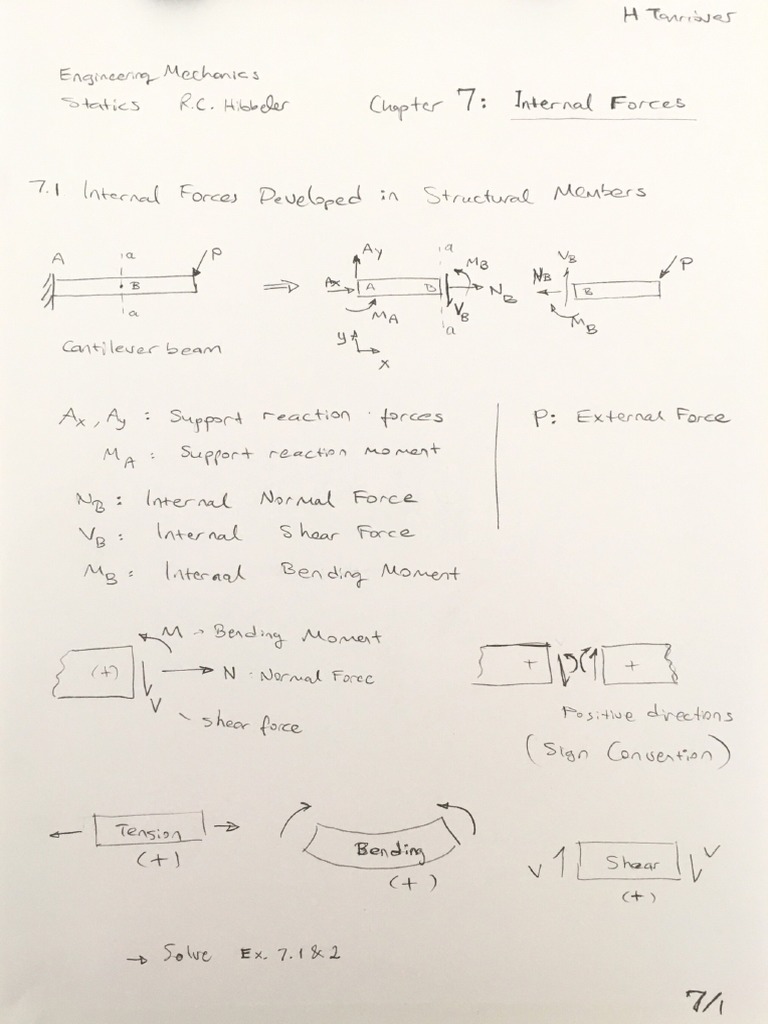 H Tanrıöver
Engineering Mechanics
Statics R.C. Hibbeler Chapter 7: Internal Forces
7.1 Internal Forces Developed in Structural Members
A a P
B
a
Cantilever beam
Ay a MB
Ax A B NB
MA VB
a
y
x
VB P
NB B
MB
Ax, Ay : Support reaction forces
MA : Support reaction moment
NB : Internal Normal Force
VB : Internal Shear Force
MB : Internal Bending Moment
P: External Force
M → Bending Moment
(+) N : Normal Force
V
shear force
+ +
Positive directions
(Sign Convention)
Tension
(+)
Bending
(+)
V Shear V
(+)
→ Solve Ex. 7.1 & 2
7/1